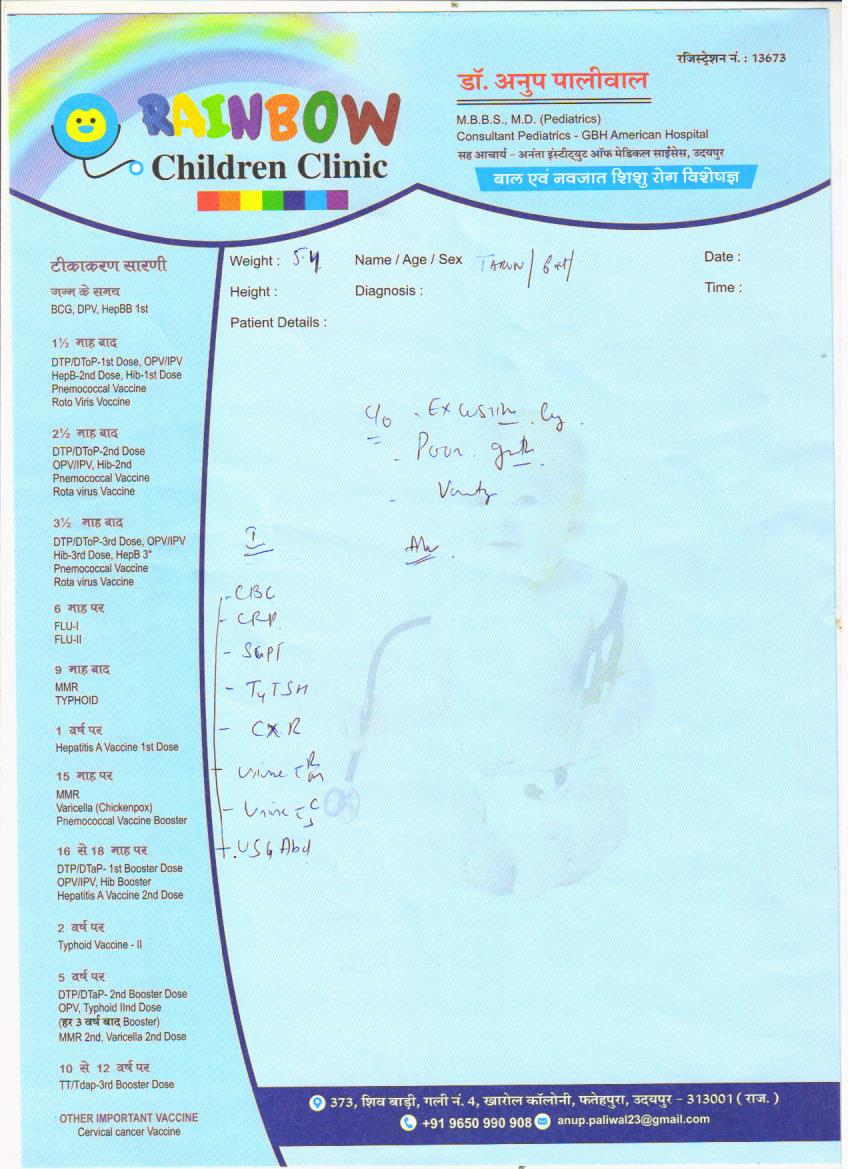 रजिस्ट्रेशन नं. : 13673
RAINBOW
Children Clinic
डॉ. अनुप पालीवाल
M.B.B.S., M.D. (Pediatrics)
Consultant Pediatrics - GBH American Hospital
सह आचार्य - अनंता इंस्टीट्युट ऑफ मेडिकल साईंसेस, उदयपुर
बाल एवं नवजात शिशु रोग विशेषज्ञ
Weight : 5.4 Name / Age / Sex TARUN / Date :
Height : Diagnosis : Time :
Patient Details :
टीकाकरण सारणी
जन्म के समय
BCG, DPV, HepBB 1st
1½ माह बाद
DTP/DToP-1st Dose, OPV/IPV
HepB-2nd Dose, Hib-1st Dose
Pnemococcal Vaccine
Roto Viris Voccine
2½ माह बाद
DTP/DToP-2nd Dose
OPV/IPV, Hib-2nd
Pnemococcal Vaccine
Rota virus Vaccine
3½ माह बाद
DTP/DToP-3rd Dose, OPV/IPV
Hib-3rd Dose, HepB 3"
Pnemococcal Vaccine
Rota virus Vaccine
6 माह पर
FLU-I
FLU-II
9 माह बाद
MMR
TYPHOID
1 वर्ष पर
Hepatitis A Vaccine 1st Dose
15 माह पर
MMR
Varicella (Chickenpox)
Pnemococcal Vaccine Booster
16 से 18 माह पर
DTP/DTaP- 1st Booster Dose
OPV/IPV, Hib Booster
Hepatitis A Vaccine 2nd Dose
2 वर्ष पर
Typhoid Vaccine - II
5 वर्ष पर
DTP/DTaP- 2nd Booster Dose
OPV, Typhoid IInd Dose
(हर 3 वर्ष बाद Booster)
MMR 2nd, Varicella 2nd Dose
10 से 12 वर्ष पर
TT/Tdap-3rd Booster Dose
OTHER IMPORTANT VACCINE
Cervical cancer Vaccine
c/o
- Poor
I
- CBC
- CRP
- SGPT
- T4 TSH
- CXR
- Urine R/M
- Urine C/S
- USG Abd
373, शिव बाड़ी, गली नं. 4, खारोल कॉलोनी, फतेहपुरा, उदयपुर - 313001 ( राज. )
+91 9650 990 908 anup.paliwal23@gmail.com